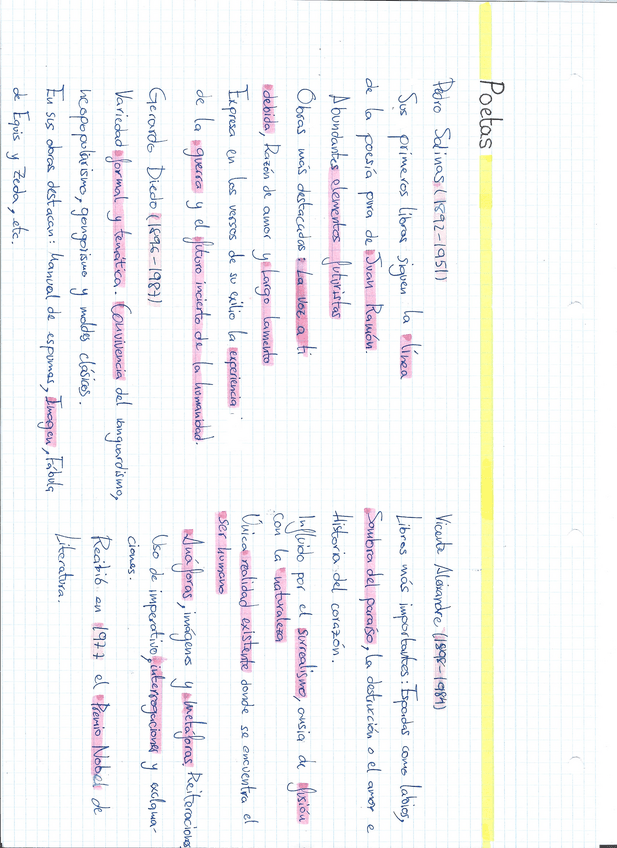 Poetas
Pedro Salinas (1892-1951)
Sus primeros libros siguen la línea
de la poesía pura de Juan Ramón.
Abundantes elementos futuristas
Obras más destacadas: La voz a ti
debida, Razón de amor y Largo lamento
Expresa en los versos de su exilio la experiencia
de la guerra y el futuro incierto de la humanidad.
Gerardo Diego (1896-1987)
Variedad formal y temática. Convivencia del vanguardismo,
neopopularismo, gongorismo y moldes clásicos.
En sus obras destacan: Manual de espumas, Imagen, Fábula
de Equis y Zeda, etc.
Vicente Aleixandre (1898-1984)
Libros más importantes: Espadas como labios,
Sombra del paraíso, la destrucción o el amor e
Historia del corazón.
Influido por el surrealismo, ansia de fusión
con la naturaleza
Única realidad existente donde se encuentra el
ser humano
Anáforas, imágenes y metáforas. Reiteraciones
Uso de imperativo, interrogaciones y exclama-
ciones.
Recibió en 1977 el Premio Nobel de
Literatura.